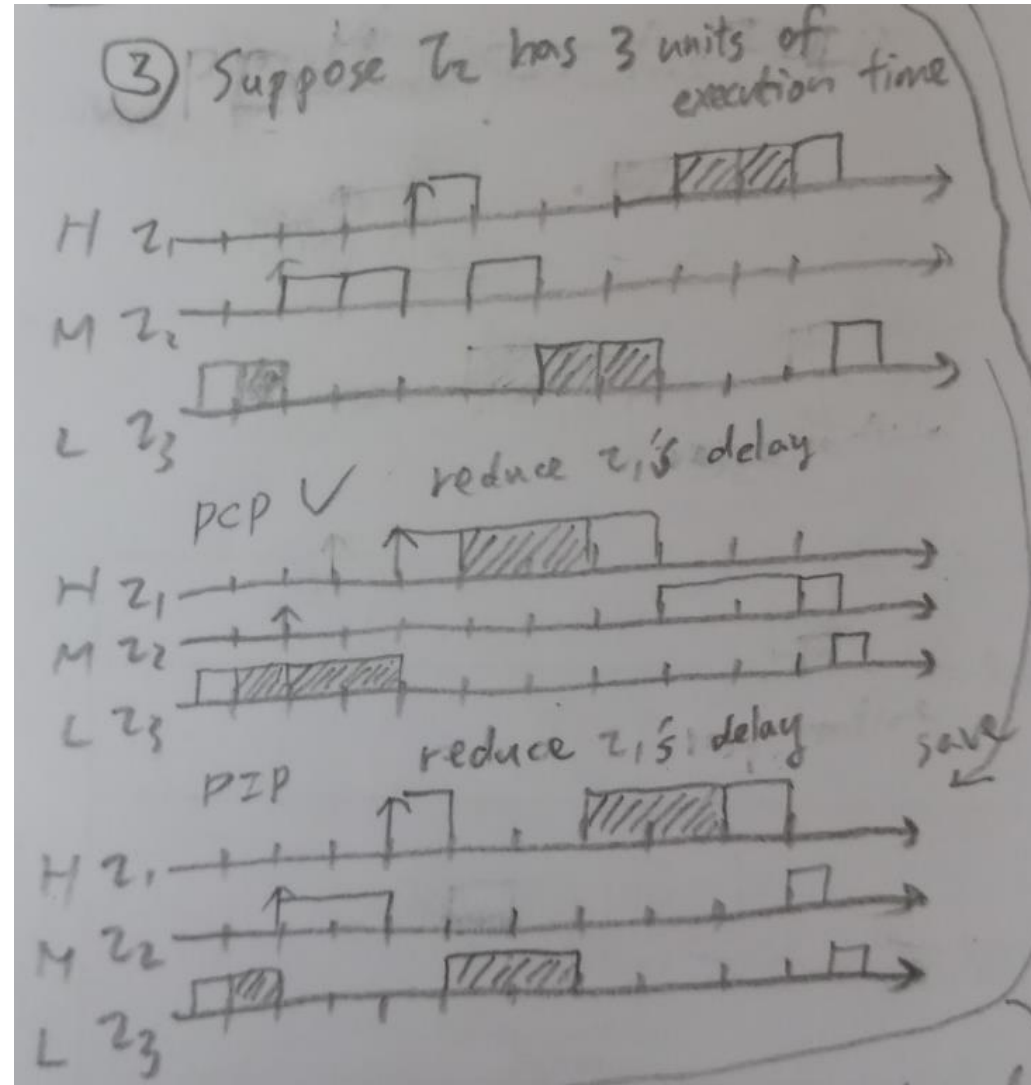 ③ Suppose τ₂ has 3 units of
execution time
H τ₁
M τ₂
L τ₃
PCP ✓ reduce τ₁'s delay
H τ₁
M τ₂
L τ₃
PIP reduce τ₁'s delay
save
H τ₁
M τ₂
L τ₃